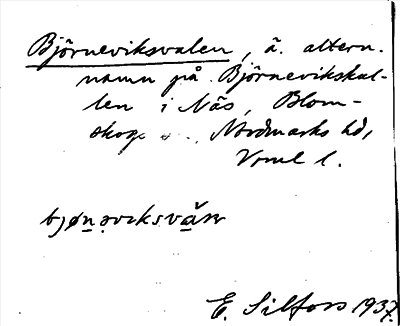 Björneviksvalen, ä. altern.
namn på Björnevikskal-
len i Näs, Blom-
skogs s., Nordmarks hd,
Vrml l.
E. Silfors 1937.